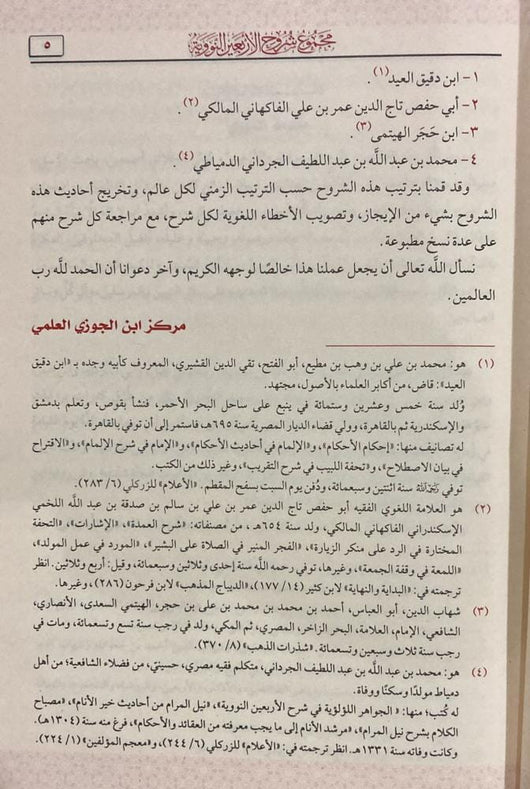 مجموع شروح الأربعين النووية
٥
١- ابن دقيق العيد(١).
٢- أبي حفص تاج الدين عمر بن علي الفاكهاني المالكي(٢).
٣- ابن حَجَر الهيتمى(٣).
٤- محمد بن عبد اللَّه بن عبد اللطيف الجرداني الدمياطي(٤).
وقد قمنا بترتيب هذه الشروح حسب الترتيب الزمني لكل عالم، وتخريج أحاديث هذه
الشروح بشيء من الإيجاز، وتصويب الأخطاء اللغوية لكل شرح، مع مراجعة كل شرح منهم
على عدة نسخ مطبوعة.
نسأل اللَّه تعالى أن يجعل عملنا هذا خالصًا لوجهه الكريم، وآخر دعوانا أن الحمد للَّه رب
العالمين.
مركز ابن الجوزي العلمي
(١) هو: محمد بن علي بن وهب بن مطيع، أبو الفتح، تقي الدين القشيري، المعروف كأبيه وجده بـ «ابن دقيق
العيد»: قاض، من أكابر العلماء بالأصول، مجتهد.
وُلد سنة خمس وعشرين وستمائة في ينبع على ساحل البحر الأحمر، فنشأ بقوص، وتعلم بدمشق
والإسكندرية ثم بالقاهرة، وولي قضاء الديار المصرية سنة ٦٩٥هـ، فاستمر إلى أن توفي بالقاهرة.
له تصانيف منها: «إحكام الأحكام»، و«الإلمام في أحاديث الأحكام»، و«الإمام في شرح الإلمام»، و«الاقتراح
في بيان الاصطلاح»، و«تحفة اللبيب في شرح التقريب»، وغير ذلك من الكتب.
توفي رَحِمَهُ اللَّهُ سنة اثنتين وسبعمائة، ودُفن يوم السبت بسفح المقطم. «الأعلام» للزركلي (٦/ ٢٨٣).
(٢) هو العلامة اللغوي الفقيه أبو حفص تاج الدين عمر بن علي بن سالم بن صدقة بن عبد اللَّه اللخمي
الإسكندراني الفاكهاني المالكي، ولد سنة ٦٥٤هـ، من مصنفاته: «شرح العمدة»، «الإشارات»، «التحفة
المختارة في الرد على منكر الزيارة»، «الفجر المنير في الصلاة على البشير»، «المورد في عمل المولد»،
«اللمعة في وقفة الجمعة»، وغيرها، توفي رحمه اللَّه سنة إحدى وثلاثين وسبعمائة، وقيل: أربع وثلاثين.
ترجمته في: «البداية والنهاية» لابن كثير (١٤/ ١٧٧)، «الديباج المذهب» لابن فرحون (٢٨٦)، وغيرها.
(٣) شهاب الدين، أبو العباس، أحمد بن محمد بن محمد بن على بن حجر، الهيتمي السعدى، الأنصاري،
الشافعي، الإمام، العلامة، البحر الزاخر، المصري، ثم المكي، ولد في رجب سنة تسع وتسعمائة، ومات في
رجب سنة ثلاث وسبعين وتسعمائة. «شذرات الذهب» (٨/ ٣٧٠).
(٤) هو: محمد بن عبد اللَّه بن عبد اللطيف الجرداني، متكلم فقيه مصري، حسيني، من فضلاء الشافعية؛ من أهل
دمياط مولدًا وسكنًا ووفاة.
له كُتب؛ منها: «الجواهر اللؤلؤية في شرح الأربعين النووية»، «نيل المرام من أحاديث خير الأنام»، «مصباح
الكلام بشرح نيل المرام»، «مرشد الأنام إلى ما يجب معرفته من العقائد والأحكام»، فرغ منه سنة (١٣٠٤هـ).
وكانت وفاته سنة ١٣٣١هـ. انظر ترجمته في: «الأعلام» للزركلي (٦/ ٢٤٤)، و«معجم المؤلفين» (١/ ٢٢٤).